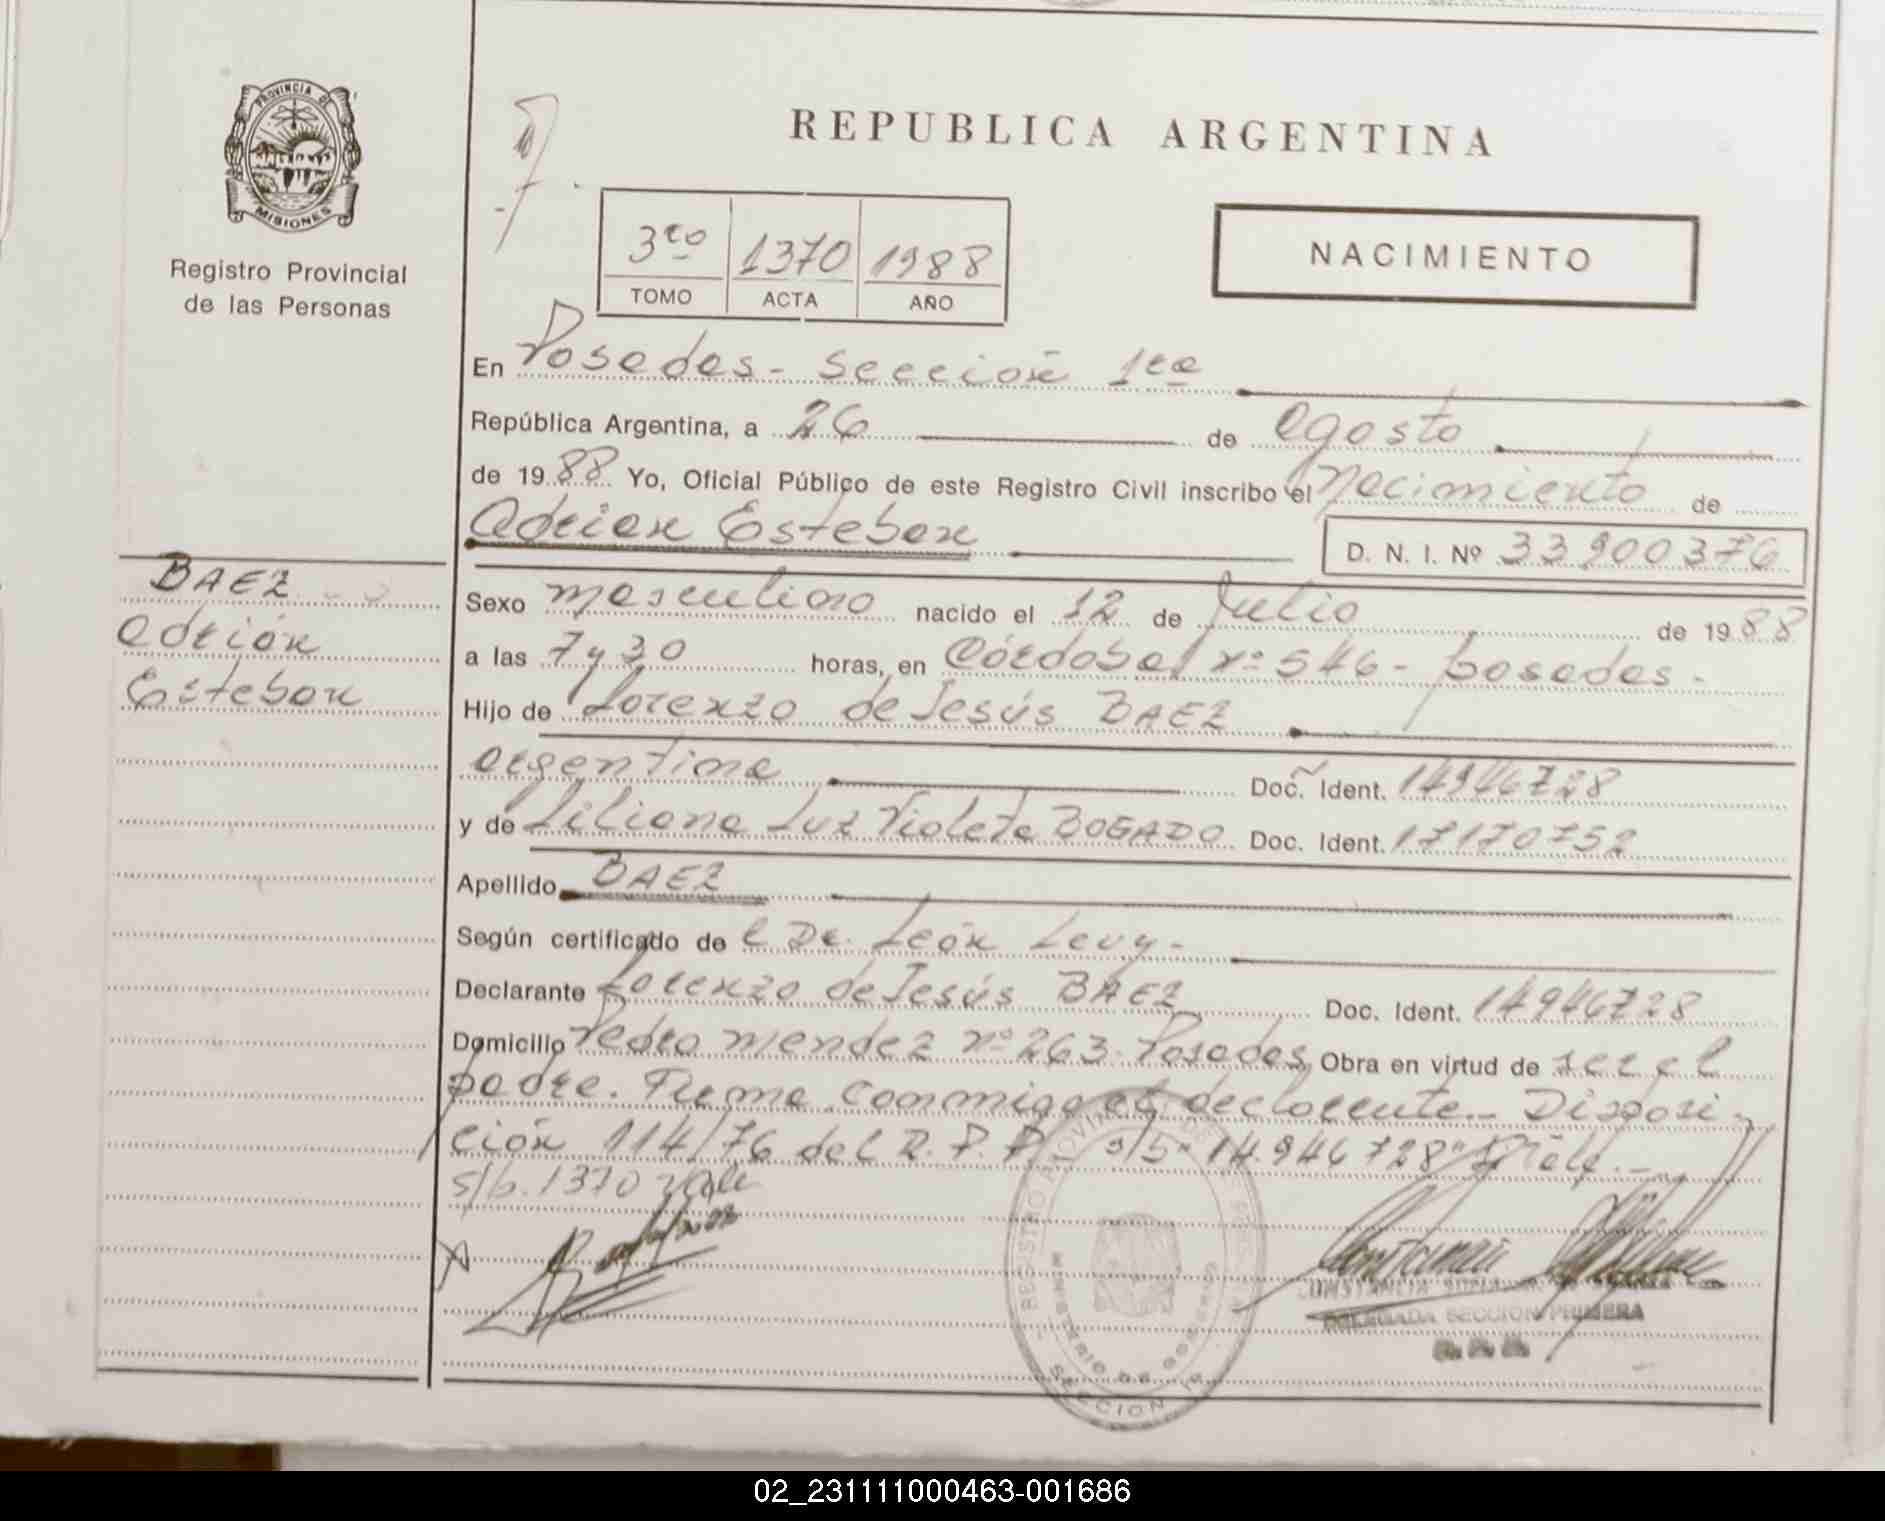 PROVINCIA DE
MISIONES
Registro Provincial
de las Personas
REPUBLICA ARGENTINA
3ro 1370 1988
TOMO ACTA AÑO
NACIMIENTO
En Posadas - Sección 1ra
República Argentina, a 26 de agosto
de 1988 Yo, Oficial Público de este Registro Civil inscribo el nacimiento de
Adrian Esteban D. N. I. Nº 33900376
BAEZ
Adrián
Esteban
Sexo masculino nacido el 12 de Julio de 1988
a las 7 y 30 horas, en Córdoba nº 546 - Posadas -
Hijo de Lorenzo de Jesús BAEZ
argentina Doc. Ident. 14946728
y de Liliana Luz Violeta BOGADO Doc. Ident. 17170752
Apellido BAEZ
Según certificado de l Dr. León Levy -
Declarante Lorenzo de Jesús BAEZ Doc. Ident. 14946728
Domicilio Pedro Mendez nº 263 Posadas Obra en virtud de ser el
padre. Firma conmigo el declarante. - Disposi-
ción 114/76 del R. P. P. s/b "14.946728" Vale. -
s/b. 1370 vale
REGISTRO PROVINCIAL DE
MINISTERIO DE GOBIERNO
SECCION 1ª
CONSTANCIA
DELEGADA SECCION PRIMERA
02_231111000463-001686